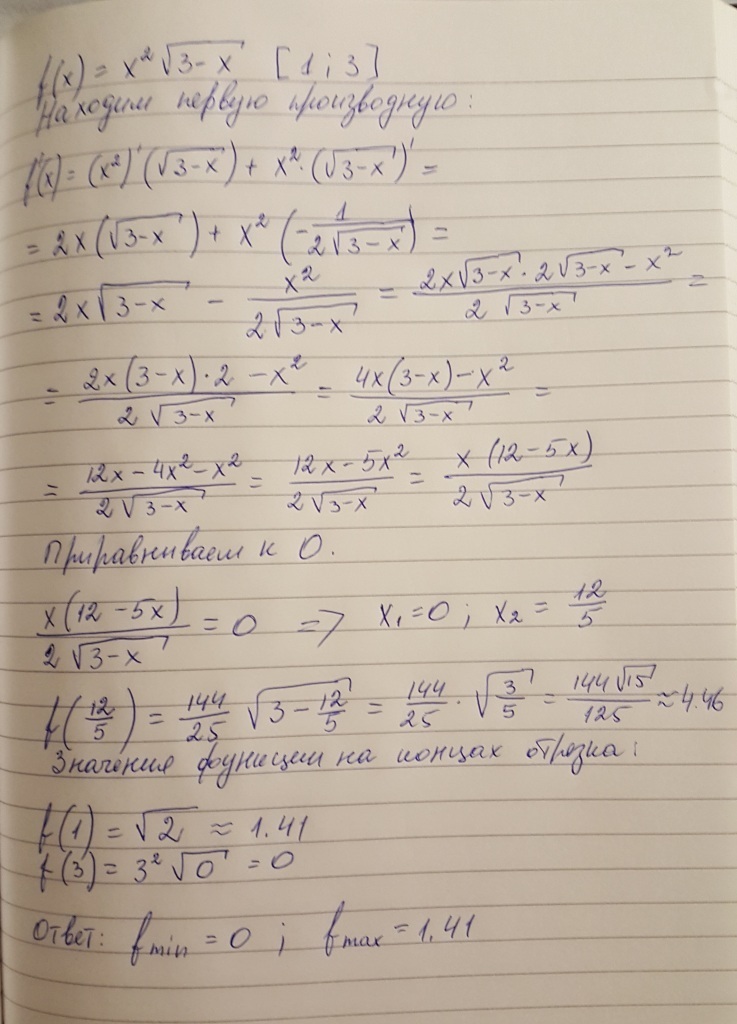 f(x) = x² √(3-x) [1; 3]
Находим первую производную:
f'(x) = (x²)'(√(3-x)) + x²·(√(3-x))' =
= 2x(√(3-x)) + x²(-1/(2√(3-x))) =
= 2x√(3-x) - x²/(2√(3-x)) = (2x√(3-x)·2√(3-x) - x²)/(2√(3-x)) =
= (2x(3-x)·2 - x²)/(2√(3-x)) = (4x(3-x) - x²)/(2√(3-x)) =
= (12x - 4x² - x²)/(2√(3-x)) = (12x - 5x²)/(2√(3-x)) = x(12-5x)/(2√(3-x))
Приравниваем к 0.
x(12-5x)/(2√(3-x)) = 0 => x₁=0; x₂ = 12/5
f(12/5) = 144/25 √(3 - 12/5) = 144/25 · √(3/5) = 144√15/125 ≈ 4.46
Значения функции на концах отрезка:
f(1) = √2 ≈ 1.41
f(3) = 3² √0 = 0
Ответ: fmin = 0; fmax = 1.41